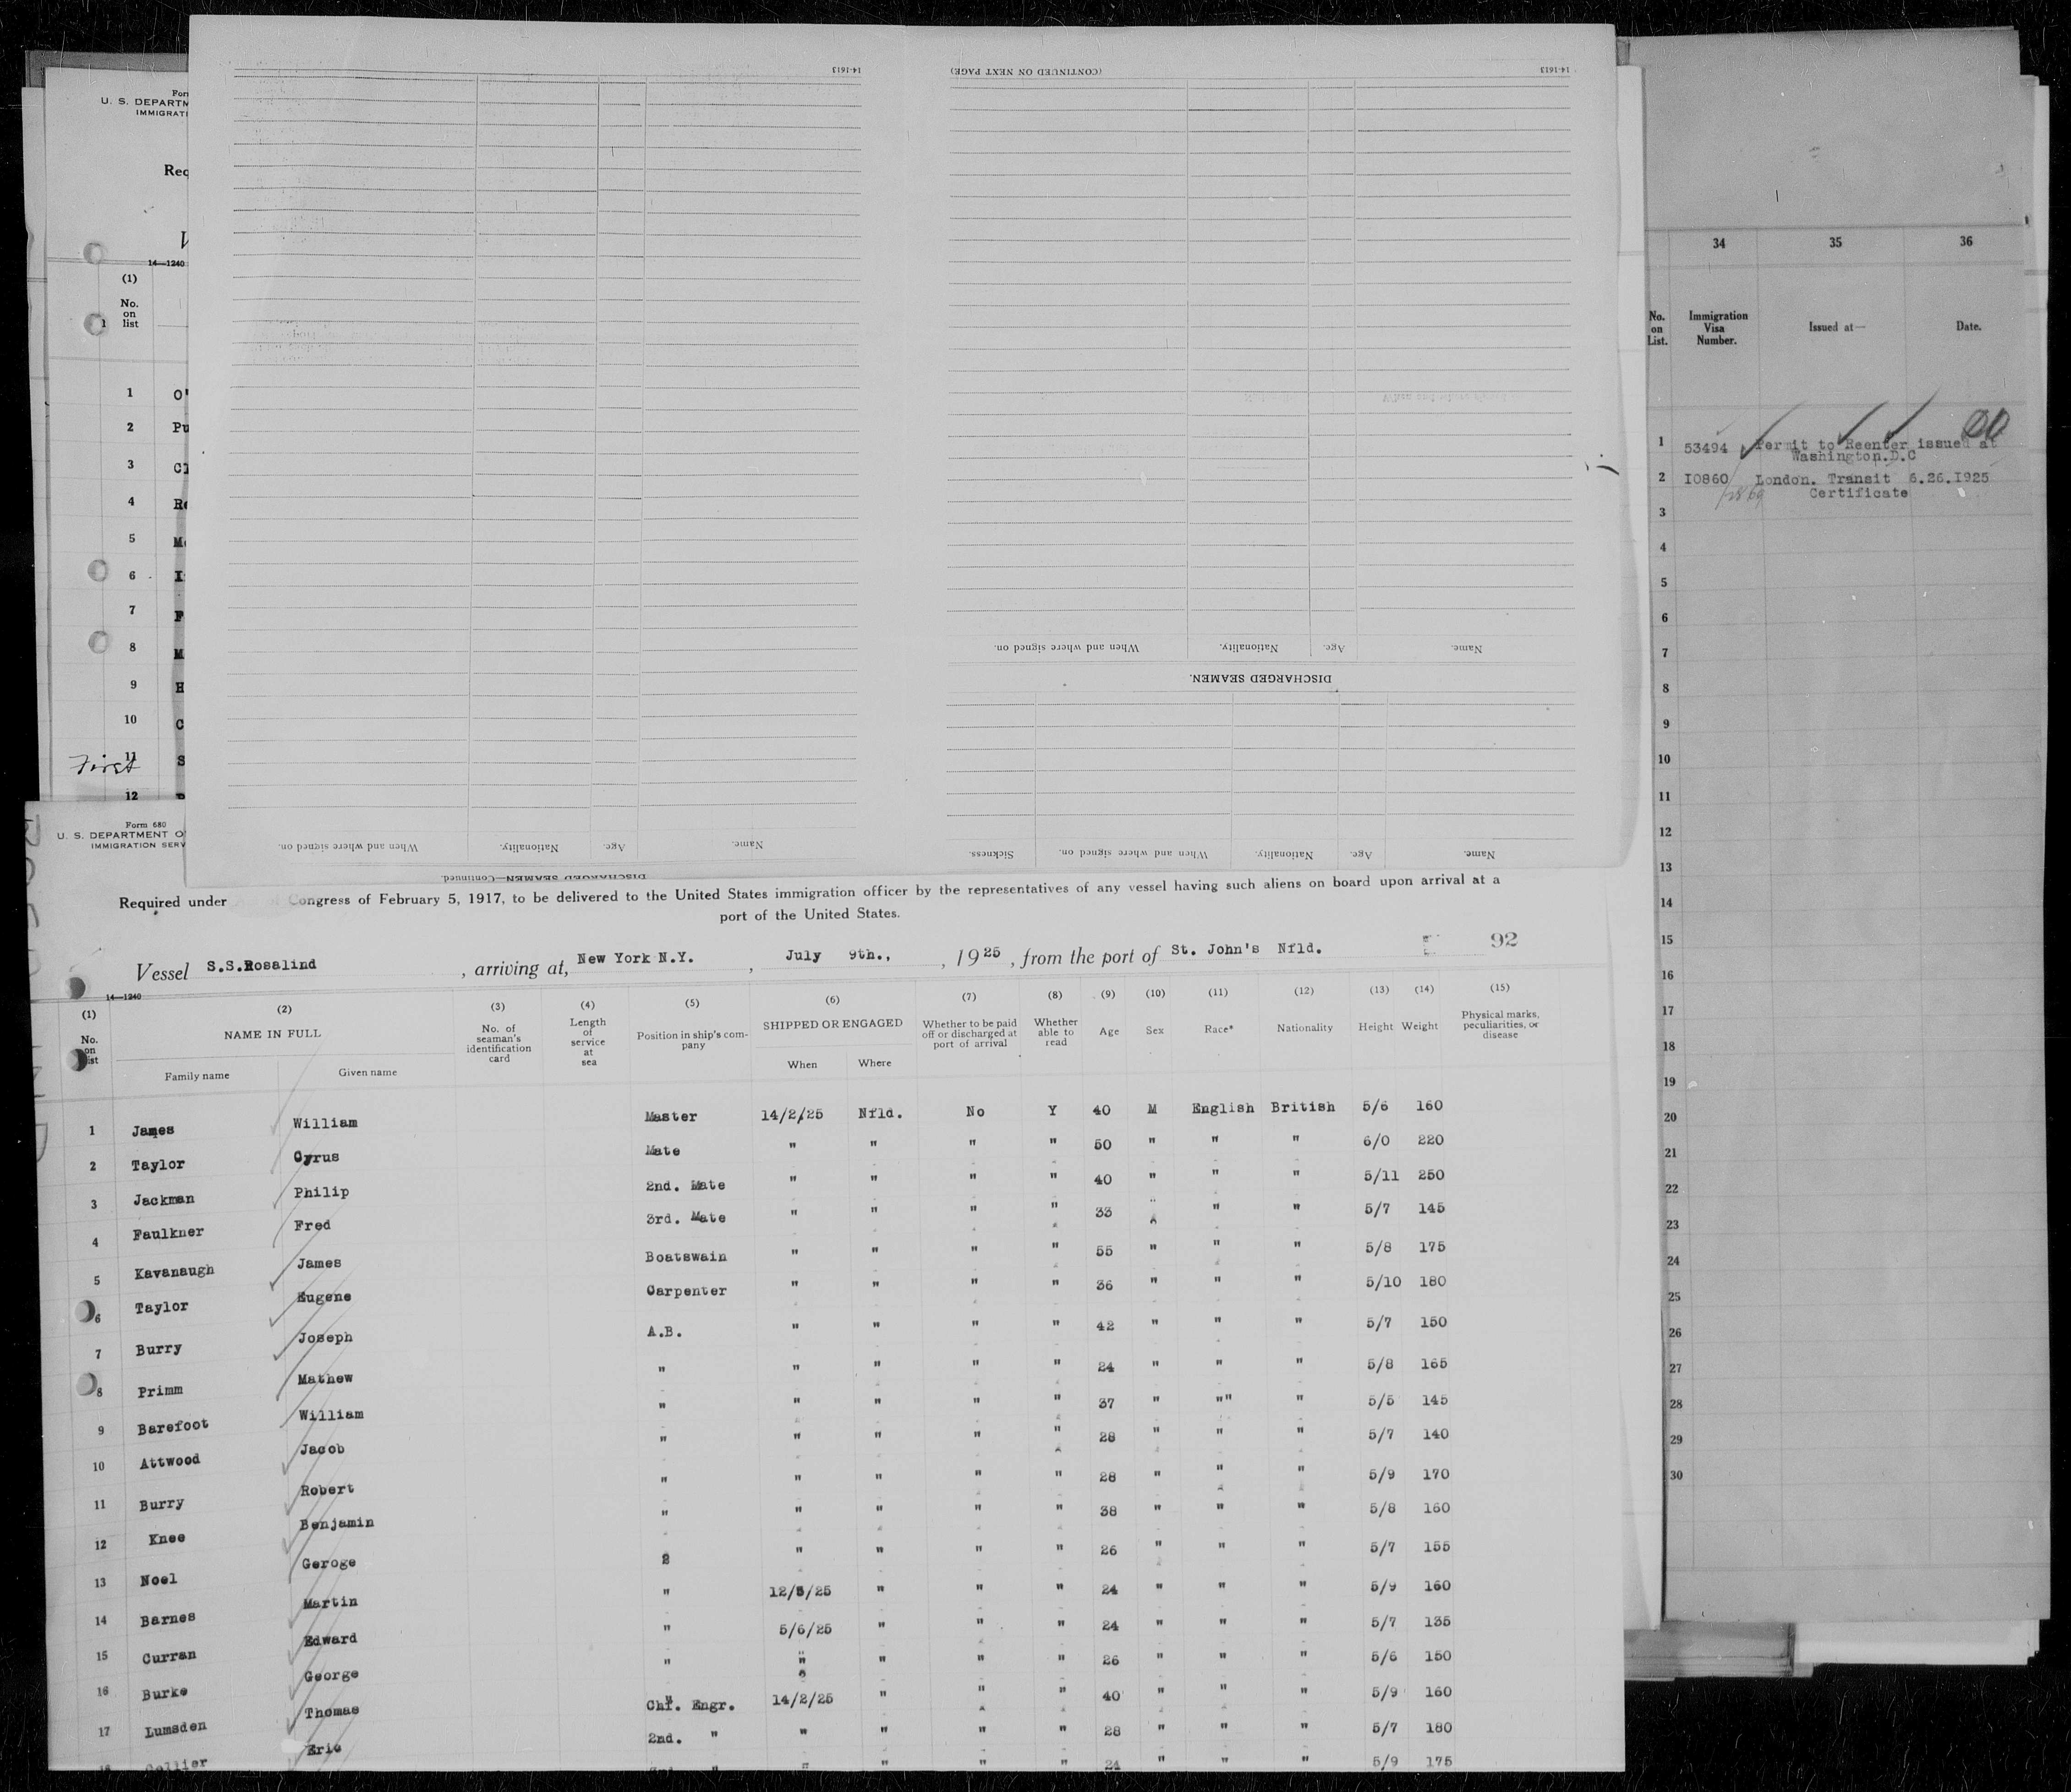 Form
U. S. DEPARTM
IMMIGRATI
Req
V
14—1240
(1)
No.
on
list
1
1 O'
2 Pu
3 Cl
4 Re
5 Mc
6 I
7 F
8 M
9 H
10 C
11 S
First
12
14-1613
(CONTINUED ON NEXT PAGE)
14-1613
When and where signed on.
Nationality.
Age.
Name.
DISCHARGED SEAMEN.
When and where signed on.
Nationality.
Age.
Name.
Sickness.
When and where signed on.
Nationality.
Age.
Name.
DISCHARGED SEAMEN—Continued.
34 35 36
No.
on
List.
Immigration
Visa
Number.
Issued at—
Date.
1 53494 Permit to Reenter issued at
Washington.D.C
2 I0860 London. Transit 6.26.I925
Certificate
3
4
5
6
7
8
9
10
11
12
13
14
15
16
17
18
19
20
21
22
23
24
25
26
27
28
29
30
Form 680
U. S. DEPARTMENT O
IMMIGRATION SERV
Required under Congress of February 5, 1917, to be delivered to the United States immigration officer by the representatives of any vessel having such aliens on board upon arrival at a
port of the United States.
Vessel S.S.Rosalind , arriving at, New York N.Y. , July 9th., , 1925 , from the port of St. John's Nfld. 92
14—1240
(1) (2) (3) (4) (5) (6) (7) (8) (9) (10) (11) (12) (13) (14) (15)
No. on list
NAME IN FULL
Family name
Given name
No. of seaman's identification card
Length of service at sea
Position in ship's company
SHIPPED OR ENGAGED
When
Where
Whether to be paid off or discharged at port of arrival
Whether able to read
Age
Sex
Race*
Nationality
Height
Weight
Physical marks, peculiarities, or disease
1 James William Master 14/2/25 Nfld. No Y 40 M English British 5/6 160
2 Taylor Cyrus Mate " " " " 50 " " " 6/0 220
3 Jackman Philip 2nd. Mate " " " " 40 " " " 5/11 250
4 Faulkner Fred 3rd. Mate " " " " 33 " " " 5/7 145
5 Kavanaugh James Boatswain " " " " 55 " " " 5/8 175
6 Taylor Eugene Carpenter " " " " 36 " " " 5/10 180
7 Burry Joseph A.B. " " " " 42 " " " 5/7 150
8 Primm Mathew " " " " " 24 " " " 5/8 165
9 Barefoot William " " " " " 37 " "" " 5/5 145
10 Attwood Jacob " " " " " 28 " " " 5/7 140
11 Burry Robert " " " " " 28 " " " 5/9 170
12 Knee Benjamin " " " " " 38 " " " 5/8 160
13 Noel Geroge " " " " 26 " " " 5/7 155
14 Barnes Martin " 12/5/25 " " " 24 " " " 5/9 160
15 Curran Edward " 5/6/25 " " " 24 " " " 5/7 135
16 Burke George " " " " " 26 " " " 5/6 150
17 Lumsden Thomas Chf. Engr. 14/2/25 " " " 40 " " " 5/9 160
18 Collier Eric 2nd. " " " " " 28 " " " 5/7 180
" " " " 24 " " " 5/9 175